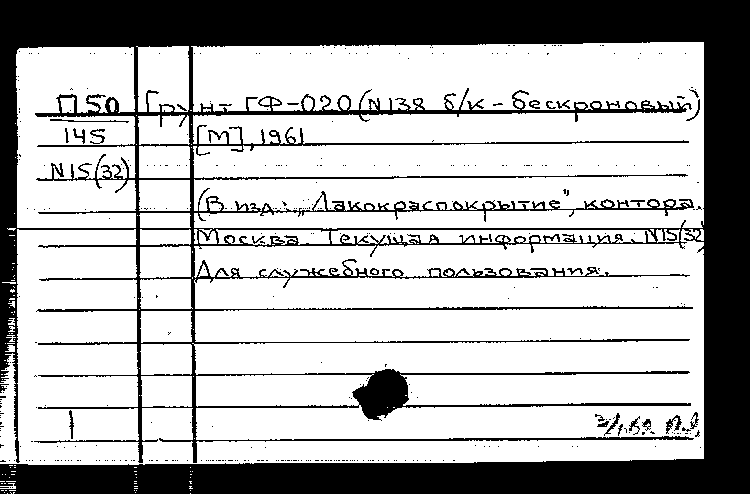 П50 Грунт ГФ-020 (N138 б/к - бескроновый)
145 [М], 1961
N15(32)
(В изд.: „Лакокраспокрытие", контора.
Москва. Текущая информация. N15(32)
Для служебного пользования.
1